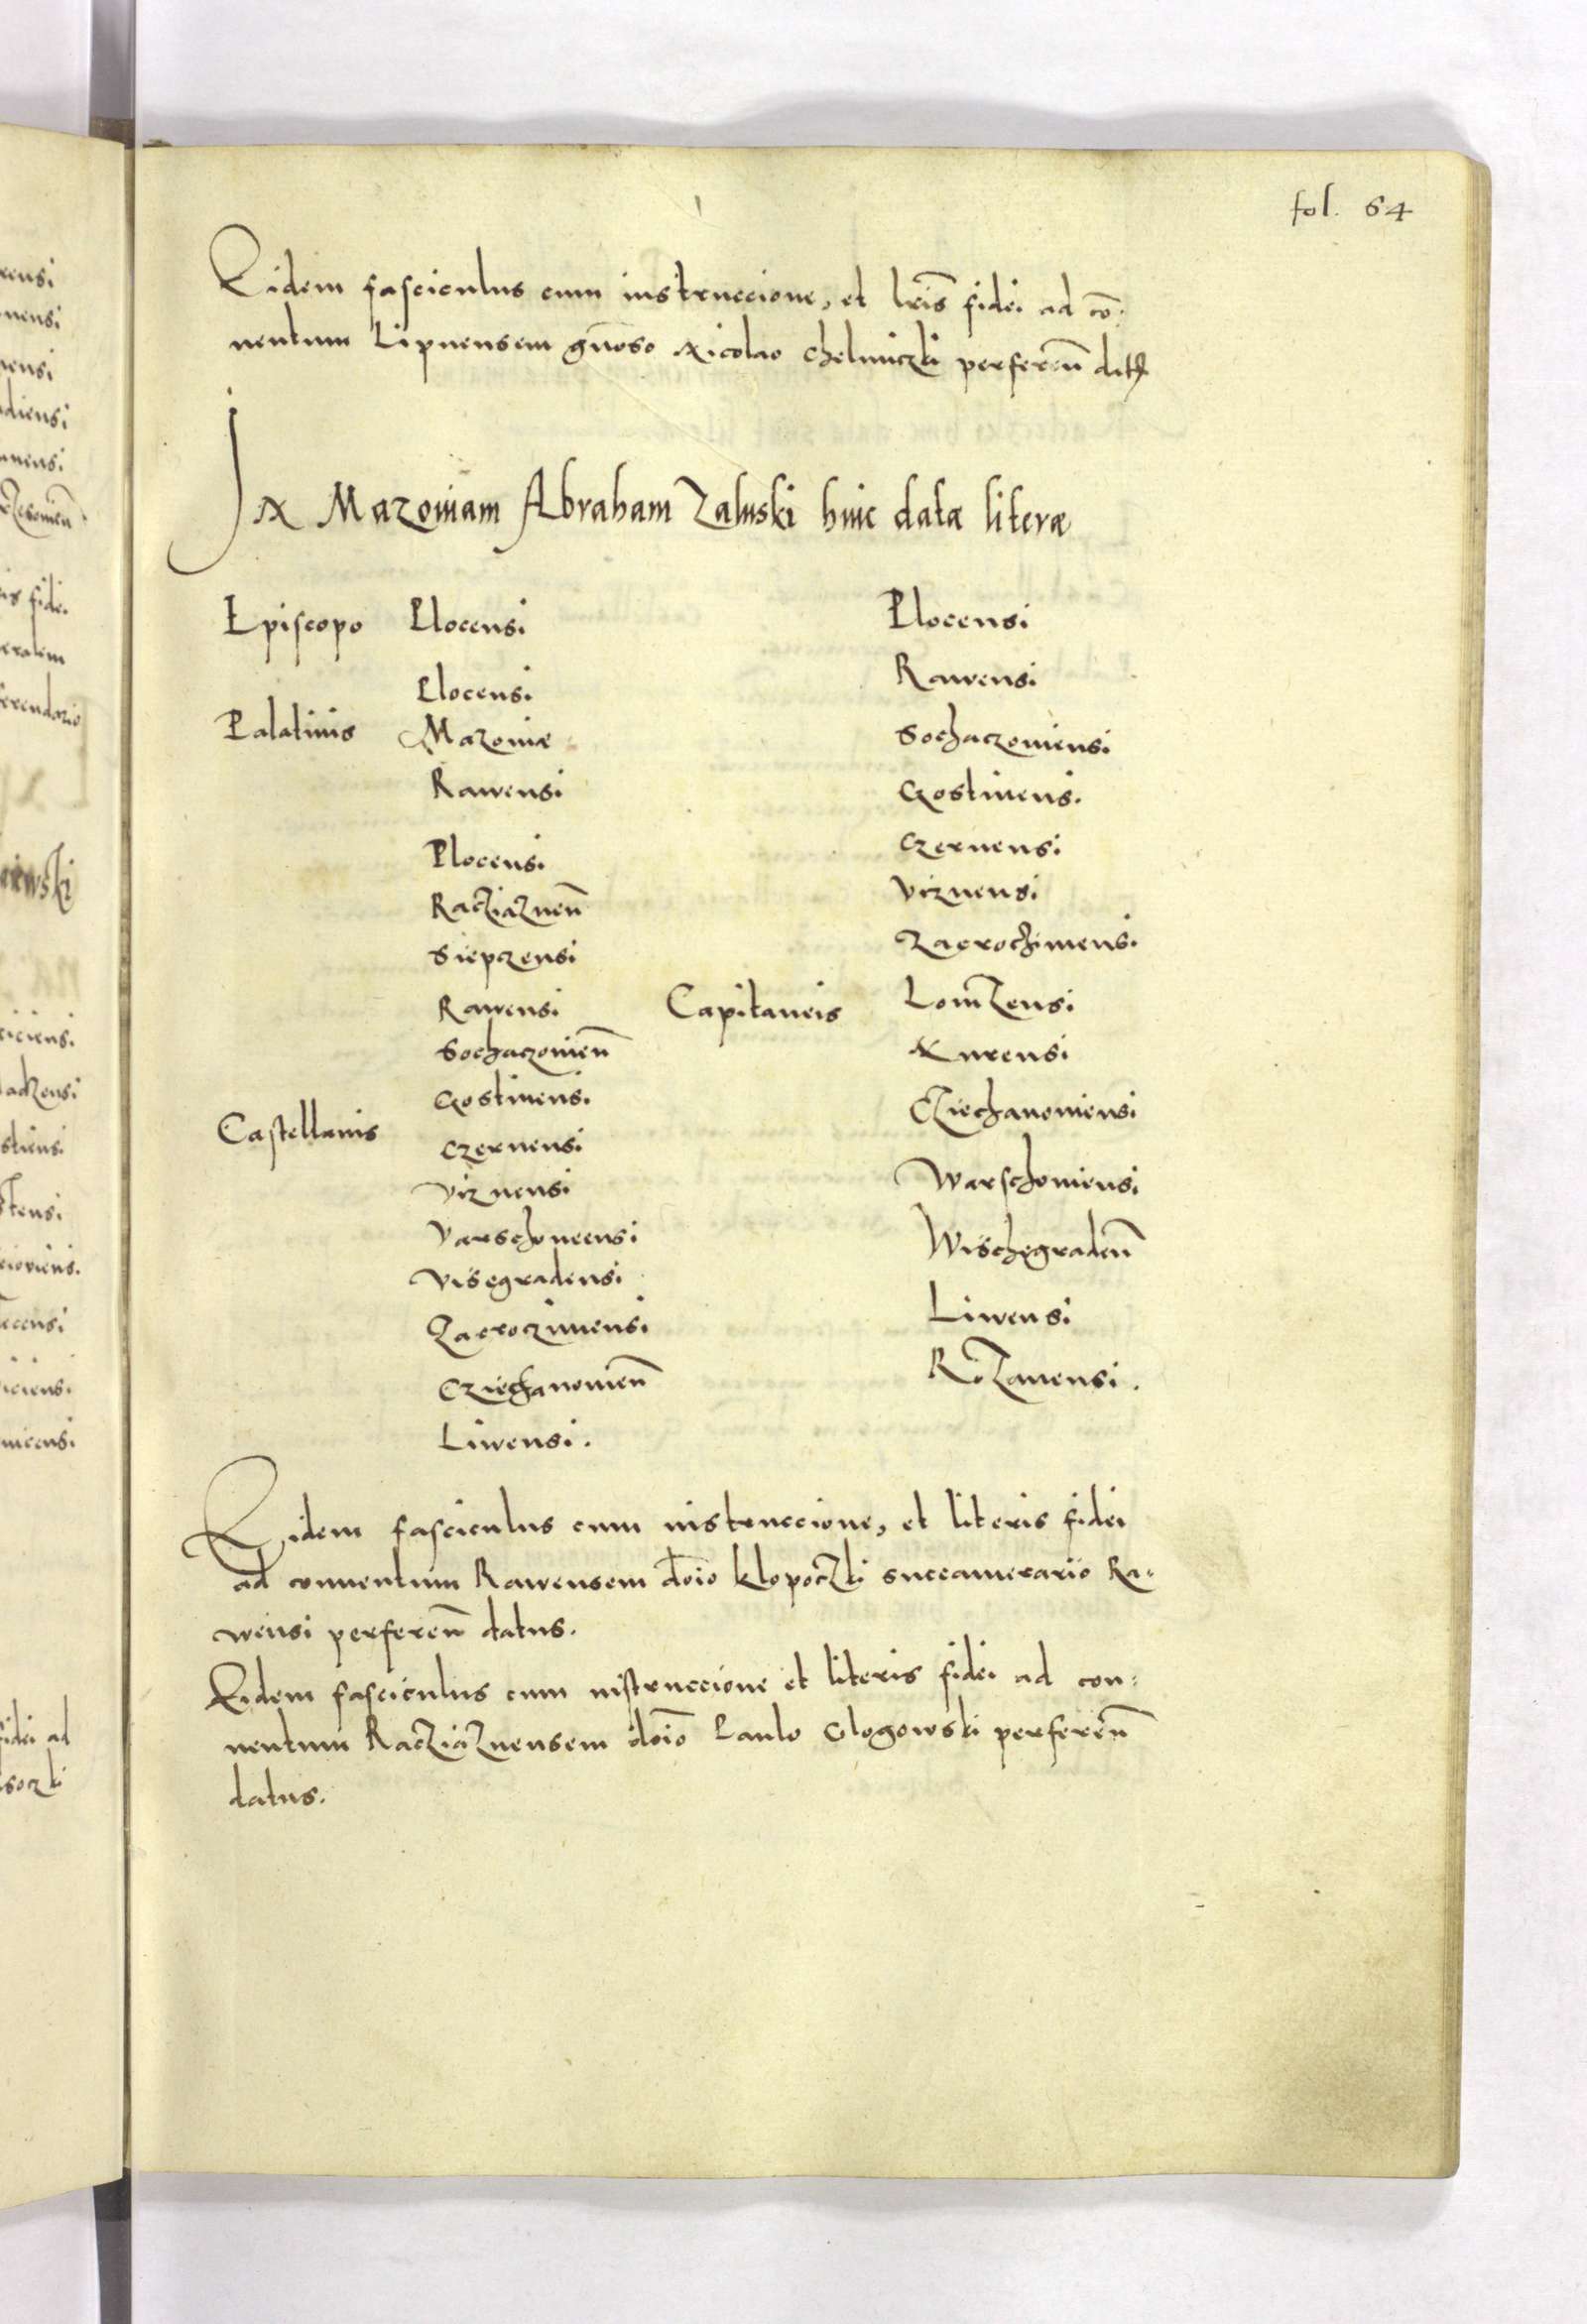 fol. 64
Eidem fasciculus cum instruccione, et lris fidei ad co:
nventum Lipnensem gnoso Nicolao Chelmiczki perferen
IN Mazoviam Abraham Zaluski huic datae literae
Episcopo Plocensi
Plocensi
Palatinis Mazoviae
Rawensi
Plocensi
Racziaznen
Siepczensi
Rawensi
Sochaczovien
Gostinensi.
Castellanis
Czernensi
Viznensi
Varschoveensi
Visegradensi
Zacroczimensi
Cziechanovien
Liwensi.
Plocensi
Rawensi
Sochaczoviensi
Gostinensi.
Czernensi
Viznensi
Zacrochimensi.
Capitaneis Lomzensi
Nurensi
Cziechanoviensi
Warschoviensi
Wischegraden
Liwensi
Rozanensi.
Eidem fasciculus cum instruccione, et literis fidei
ad conventum Rawensem dnio Klopoczki succamerario Ra-
wensi perferen datus.
Eidem fasciculus cum instruccione et literis fidei ad con:
ventum Racziaznensem dnio Paulo Glogowski perferen
datus.